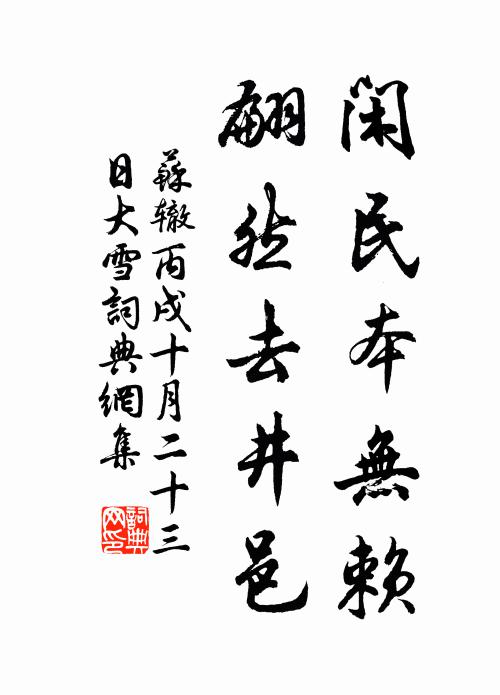 閑民本無賴
翩然去井邑
蘇轍丙戌十月二十三
日大雪詞典網集
詞典
网印